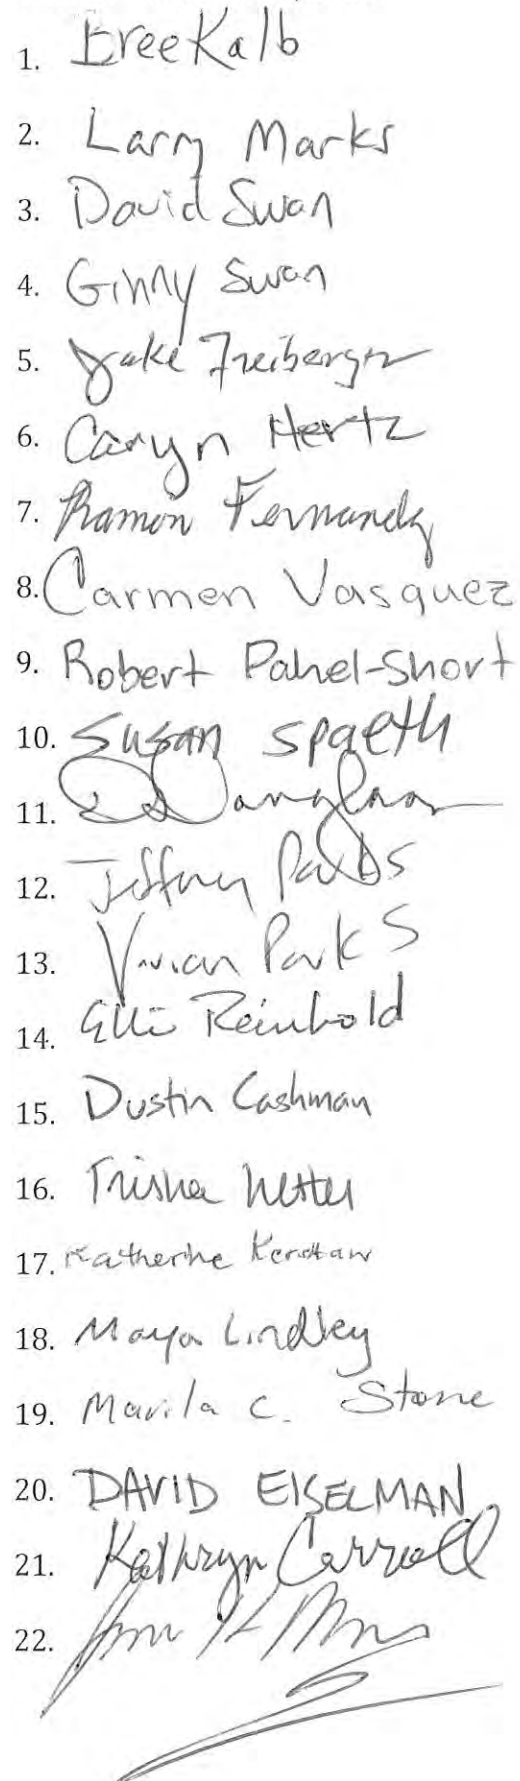 1. Bree Kalb
2. Larry Marks
3. David Swan
4. Ginny Swan
5. Jake Freiberger
6. Caryn Hertz
7. Ramon Fernandez
8. Carmen Vasquez
9. Robert Pahel-Short
10. Susan Spaeth
11.
12. Jeffrey Parks
13. Vivian Parks
14. Elli Reinhold
15. Dustin Cashman
16. Trisha
17. Katherine Kershaw
18. Maya Lindley
19. Marila C. Stone
20. DAVID EISELMAN
21. Kathryn Carroll
22.